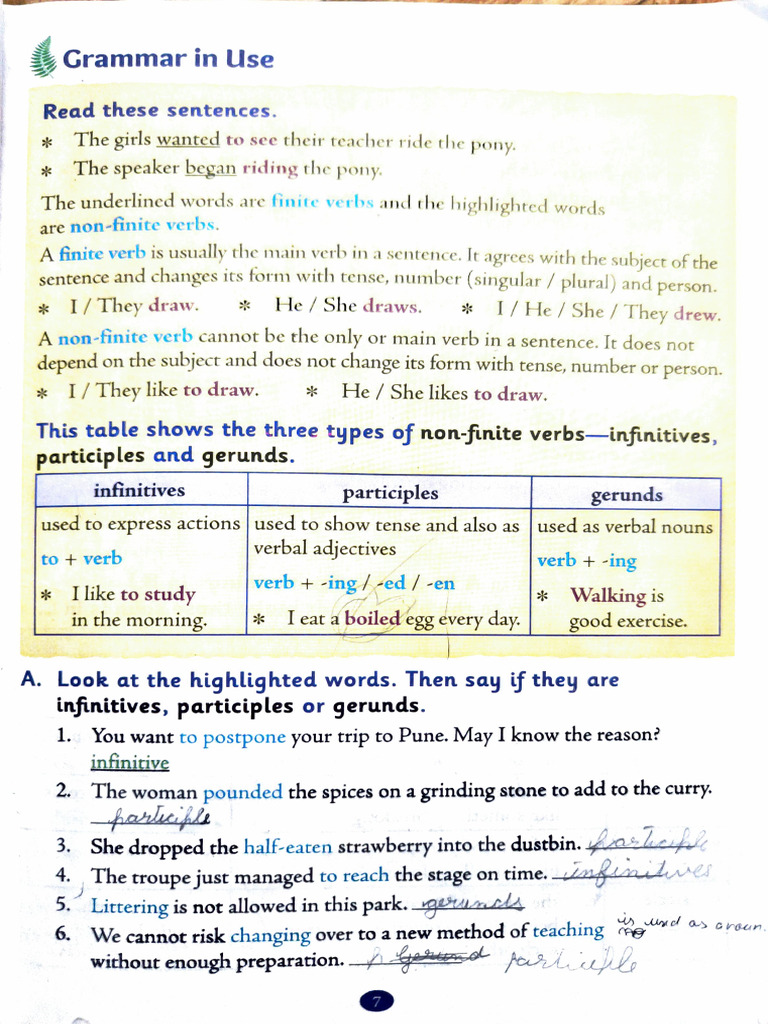 Grammar in Use
Read these sentences.
* The girls wanted to see their teacher ride the pony.
* The speaker began riding the pony.
The underlined words are finite verbs and the highlighted words
are non-finite verbs.
A finite verb is usually the main verb in a sentence. It agrees with the subject of the
sentence and changes its form with tense, number (singular / plural) and person.
* I / They draw. * He / She draws. * I / He / She / They drew.
A non-finite verb cannot be the only or main verb in a sentence. It does not
depend on the subject and does not change its form with tense, number or person.
* I / They like to draw. * He / She likes to draw.
This table shows the three types of non-finite verbs—infinitives,
participles and gerunds.
infinitives participles gerunds
used to express actions used to show tense and also as used as verbal nouns
verbal adjectives
to + verb verb + -ing / -ed / -en verb + -ing
* I like to study * I eat a boiled egg every day. * Walking is
in the morning. good exercise.
A. Look at the highlighted words. Then say if they are
infinitives, participles or gerunds.
1. You want to postpone your trip to Pune. May I know the reason?
infinitive
2. The woman pounded the spices on a grinding stone to add to the curry.
participle
3. She dropped the half-eaten strawberry into the dustbin. participle
4. The troupe just managed to reach the stage on time. infinitives
5. Littering is not allowed in this park. gerunds
6. We cannot risk changing over to a new method of teaching is used as a noun.
without enough preparation. gerund participle
7